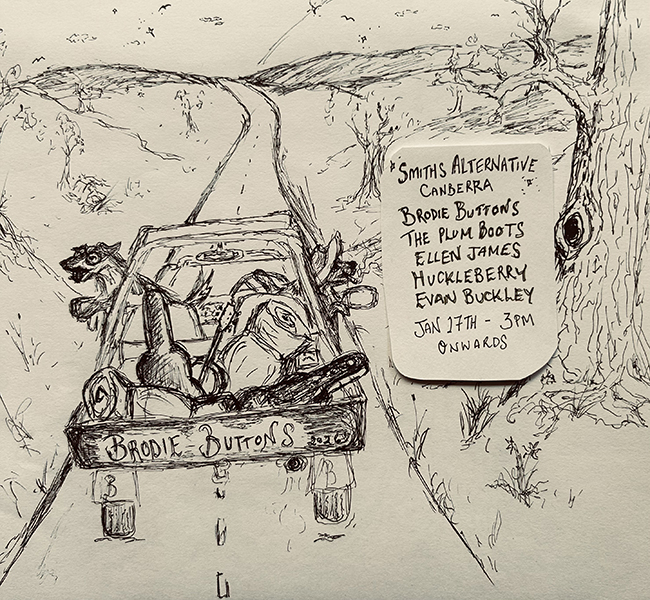 "SMITHS ALTERNATIVE
CANBERRA"
BRODIE BUTTONS
THE PLUM BOOTS
ELLEN JAMES
HUCKLEBERRY
EVAN BUCKLEY
JAN 17TH - 3PM
ONWARDS
BRODIE BUTTONS 2026
B B